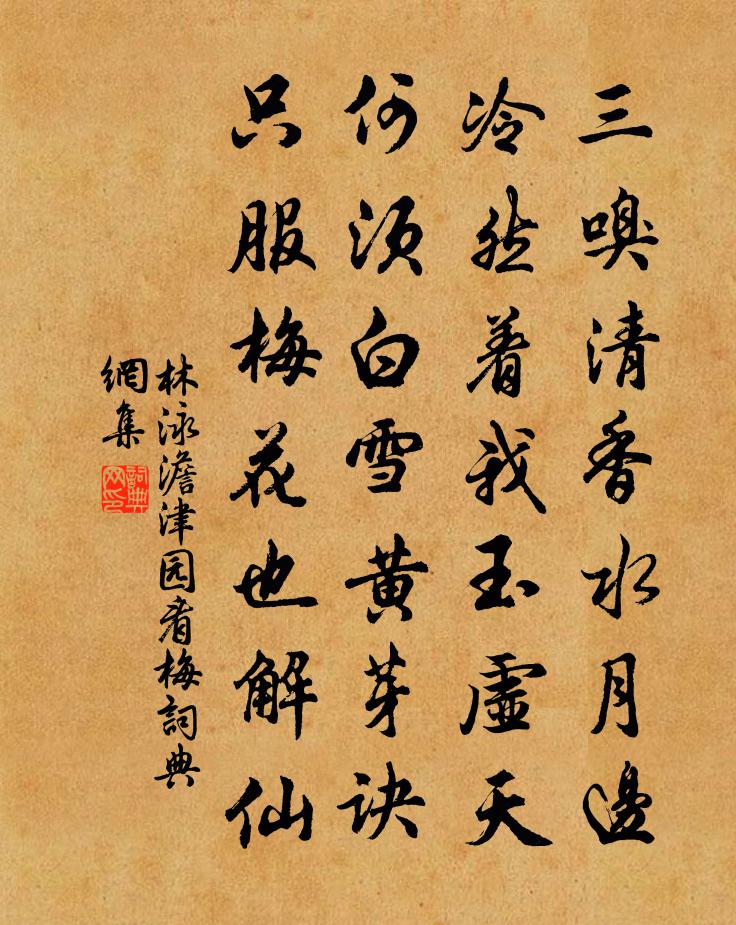 三嗅清香水月邊
冷然着我玉虛天
何須白雪黄芽訣
只服梅花也解仙
林泳澹津园看梅詞典
網集
詞典
网印